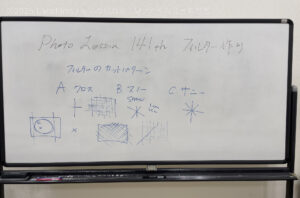 Photo Lesson 141th フィルター作り
フィルターのカットパターン
A クロス B スノー C サニー
Snow